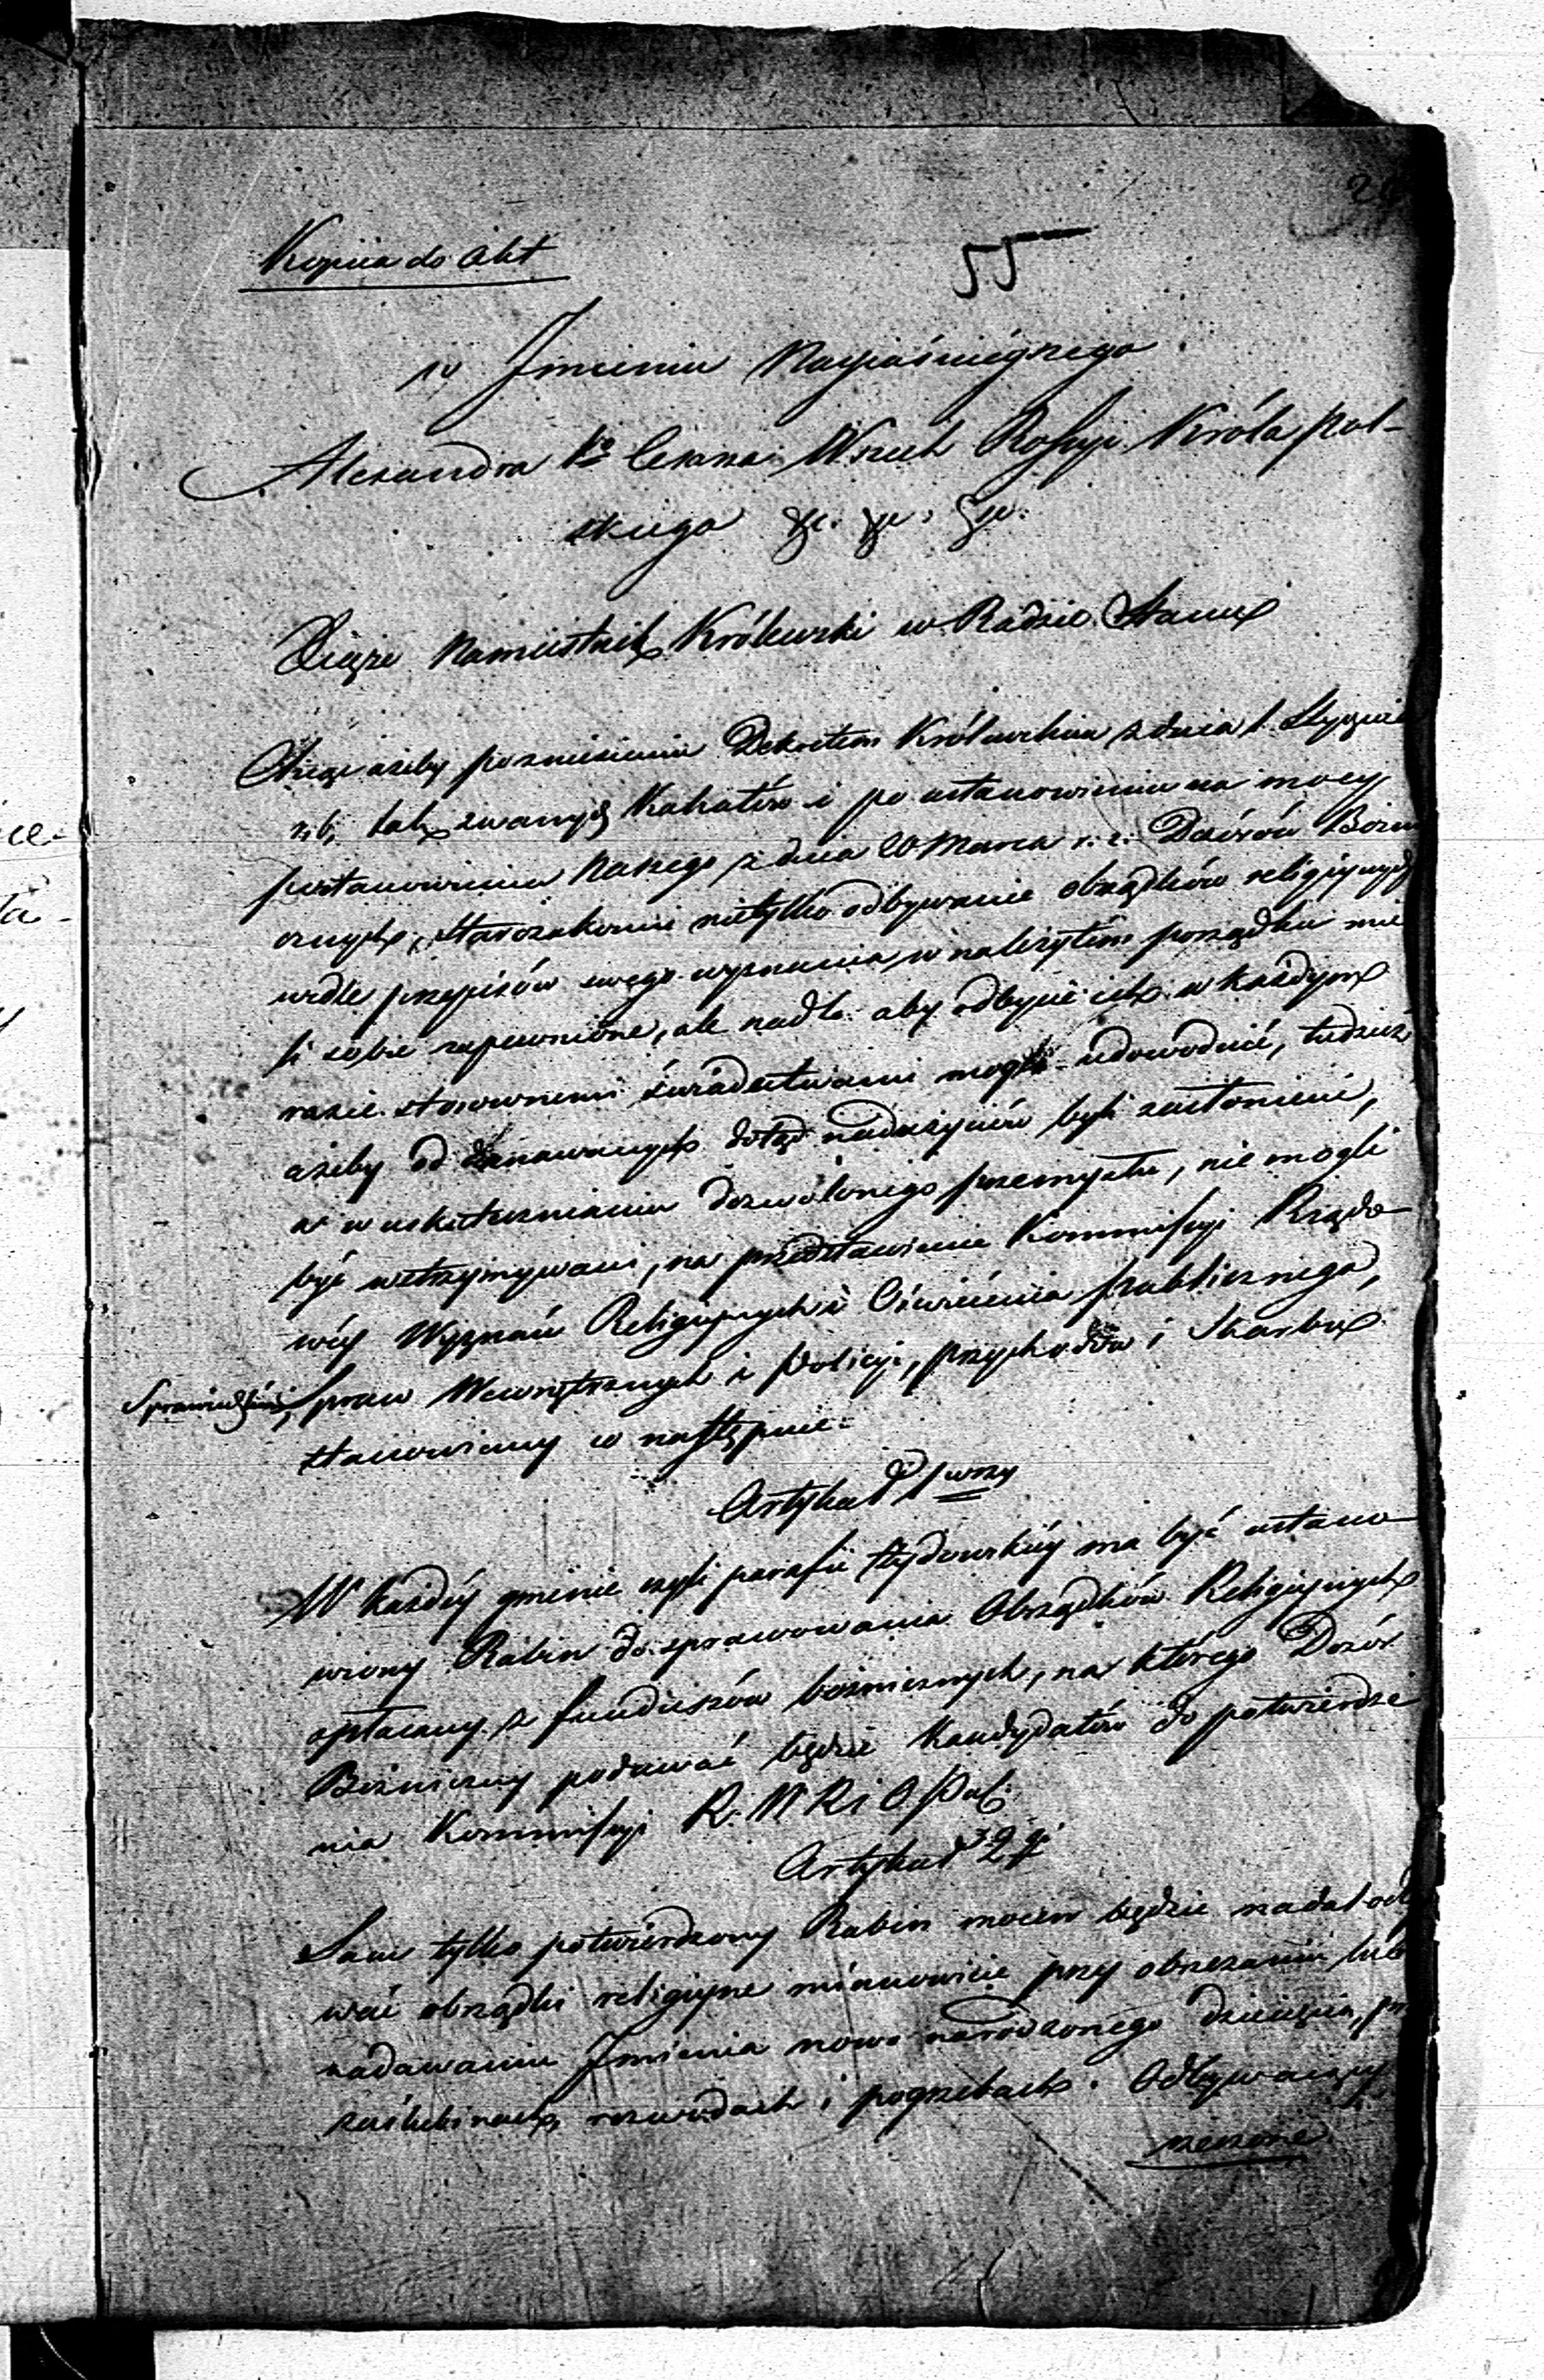 Kopiia do Akt
55
w Jmieniu Nayjaśnieyszego
Alexandra Igo Cesarza Wszech Rossyi Króla Pol-
skiego &c. &c. &c.
Xiąże Namiestnik Królewski w Radzie Stanu
Chcąc ażeby po zniesieniu Dekretem Królewskim z dnia 1. Stycznia
r. b. tak zwanych Kahałów i po ustanowieniu na mocy
postanowienia Naszego z dnia 20 Marca r. z. Dozorów Bożni
cznych, Starozakonni nietylko odbywanie obrządków religiynych
wedle przepisów swego wyznania w należytém porządku mie
li sobie zapewnione, ale nadto aby odbycie ich w każdym
razie stosownemi świadectwami mogli udowodnić, tudzież
ażeby od doznawanych dotąd nadużyciów byli zasłonieni,
a w uskutecznianiu dozwolonego przemysłu, nie mogli
być wstrzymywani, na przedstawienie Kommissyi Rządo-
wéy Wyznań Religiynych i Oświécenia publicznego,
Sprawiedliwości, Spraw Wewnętrznych i Policyi, przychodów i Skarbu
stanowiemy co następuie:
Artykuł 1wszy
W każdéy gminie czyli parafii żydowskiéy ma być ustano-
wiony Rabin do sprawowania Obrządków Religiynych
opłacany z funduszów bożnicznych, na którego Dozór
Bożniczny podawać będzie Kandydatów do potwierdze
nia Kommissyi R. W R i O Pub:
Artykuł 2gi
Sam tylko potwierdzony Rabin mocen będzie nadal odby
wać obrządki religiyne mianowicie przy obrzezaniu lub
nadawaniu Jmienia nowo narodzonego dziecięcia, przy
zaślubinach, rozwodach i pogrzebach. Odbywaiący
rzeczone